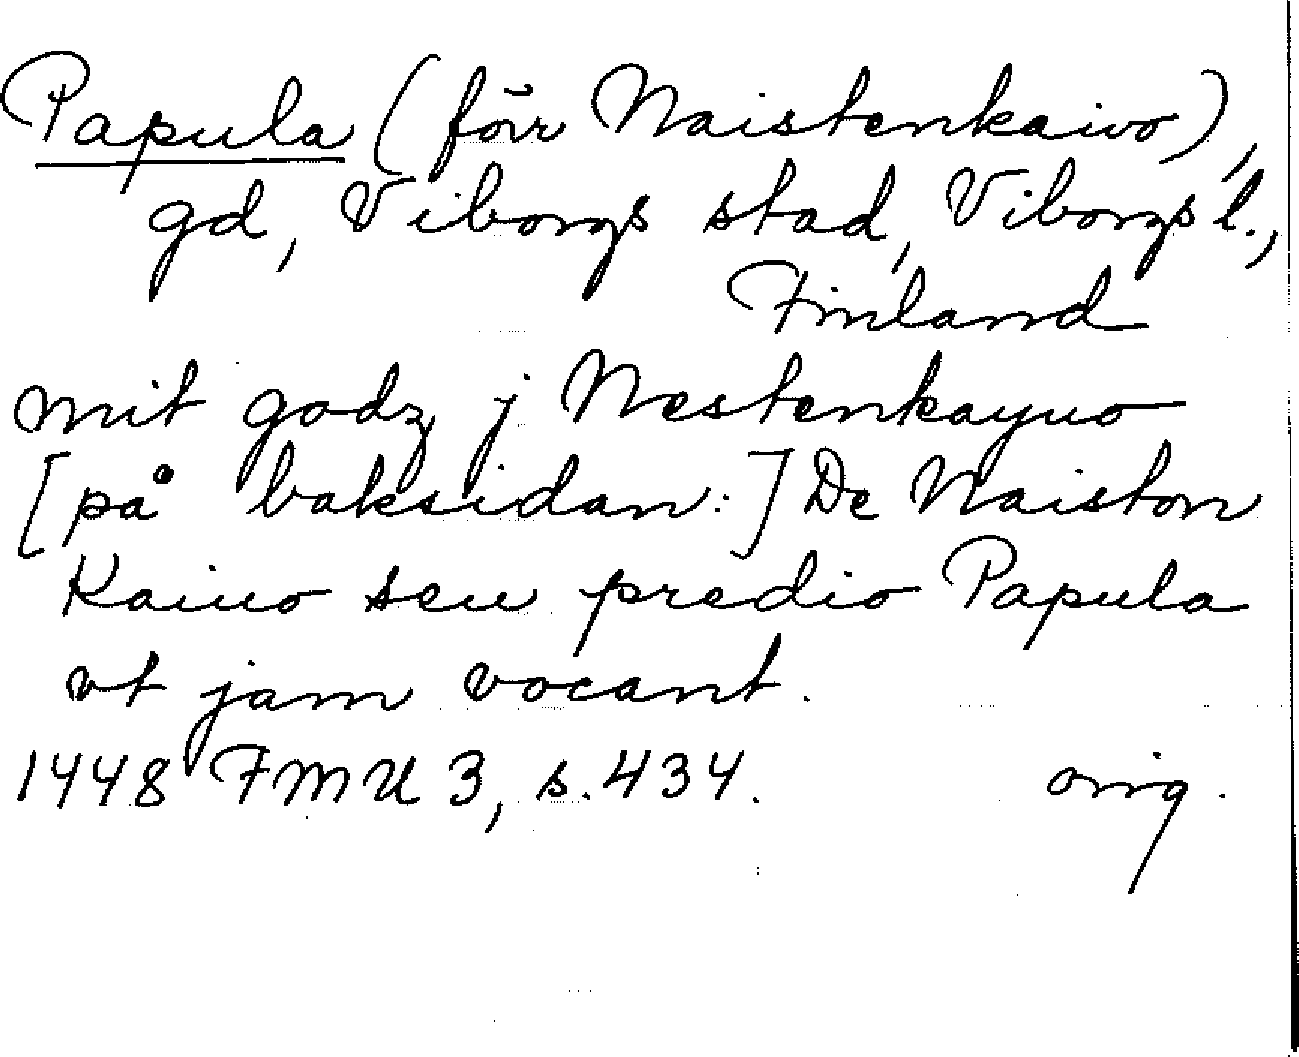 Papula (förr Naistenkaivo),
gd, Viborgs stad, Viborgs l.,
Finland
mit godz j Nestenkayuo
[på baksidan:] De Naiston
Kaiuo seu predio Papula
vt jam vocant.
1448 FMU 3, s. 434. orig.